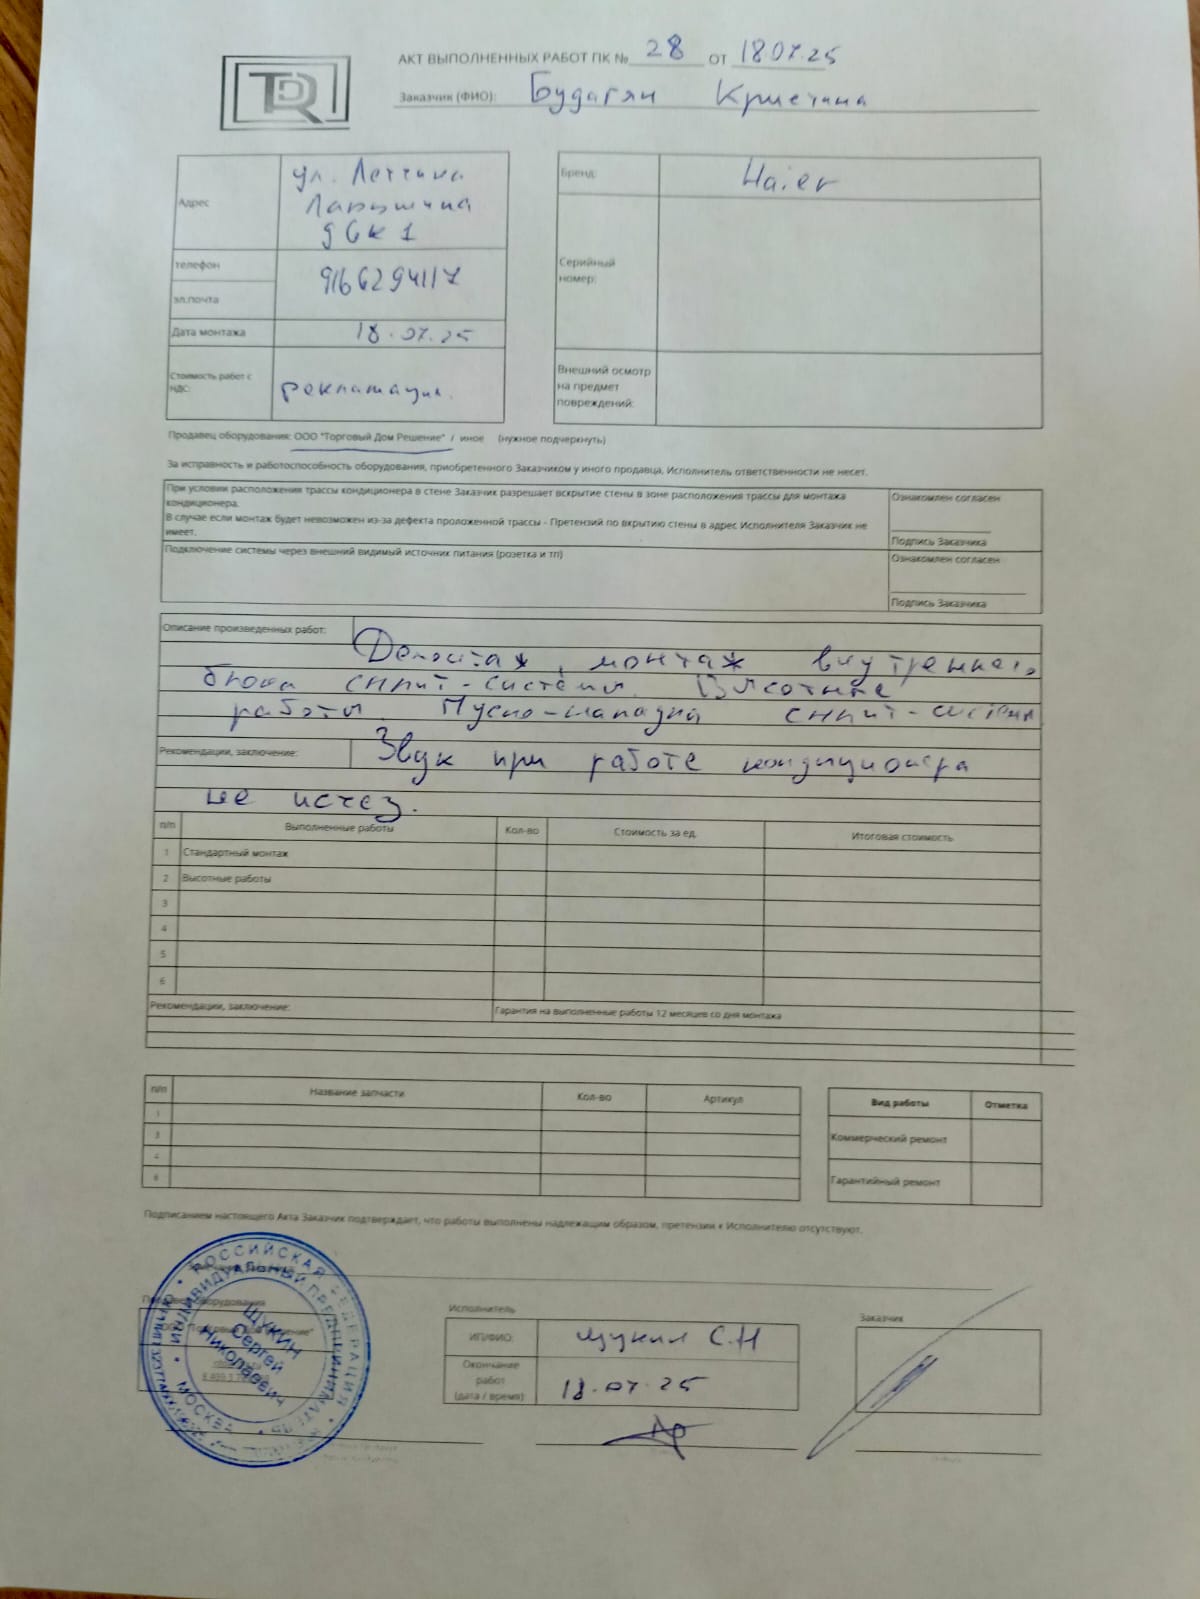 TDR
АКТ ВЫПОЛНЕННЫХ РАБОТ ПК № 28 от 18.07.25
Заказчик (ФИО): Будагян Кристина
Адрес
ул. Летчика
Лапушкина
д 6 к 1
телефон
9166294117
эл.почта
Дата монтажа 18.07.25
Стоимость работ с
НДС:
рекламация.
Бренд: Haier
Серийный
номер:
Внешний осмотр
на предмет
повреждений:
Продавец оборудования: ООО "Торговый Дом Решение" / иное (нужное подчеркнуть)
За исправность и работоспособность оборудования, приобретенного Заказчиком у иного продавца, Исполнитель ответственности не несет.
При условии расположения трассы кондиционера в стене Заказчик разрешает вскрытие стены в зоне расположения трассы для монтажа
кондиционера.
В случае если монтаж будет невозможен из-за дефекта проложенной трассы - Претензий по вкрытию стены в адрес Исполнителя Заказчик не
имеет.
Ознакомлен согласен
Подпись Заказчика
Подключение системы через внешний видимый источник питания (розетка и тп)
Ознакомлен согласен
Подпись Заказчика
Описание произведенных работ:
Демонтаж, монтаж внутреннего
блока сплит-системы. Высотные
работы. Пуско-наладка сплит-системы
Рекомендации, заключение: Звук при работе кондиционера
не исчез.
п/п Выполненные работы Кол-во Стоимость за ед. Итоговая стоимость
1 Стандартный монтаж
2 Высотные работы
3
4
5
6
Рекомендации, заключение: Гарантия на выполненные работы 12 месяцев со дня монтажа
п/п Название запчасти Кол-во Артикул
1
3
4
6
Вид работы Отметка
Коммерческий ремонт
Гарантийный ремонт
Подписанием настоящего Акта Заказчик подтверждает, что работы выполнены надлежащим образом, претензии к Исполнителю отсутствуют.
РОССИЙСКАЯ ФЕДЕРАЦИЯ
ИНДИВИДУАЛЬНЫЙ ПРЕДПРИНИМАТЕЛЬ
ЩУКИН
Сергей
Николаевич
МОСКВА
оборудования
Исполнитель
ИП/ФИО: Щукин С.Н
Окончание
работ
(дата / время): 18.07.25
Заказчик